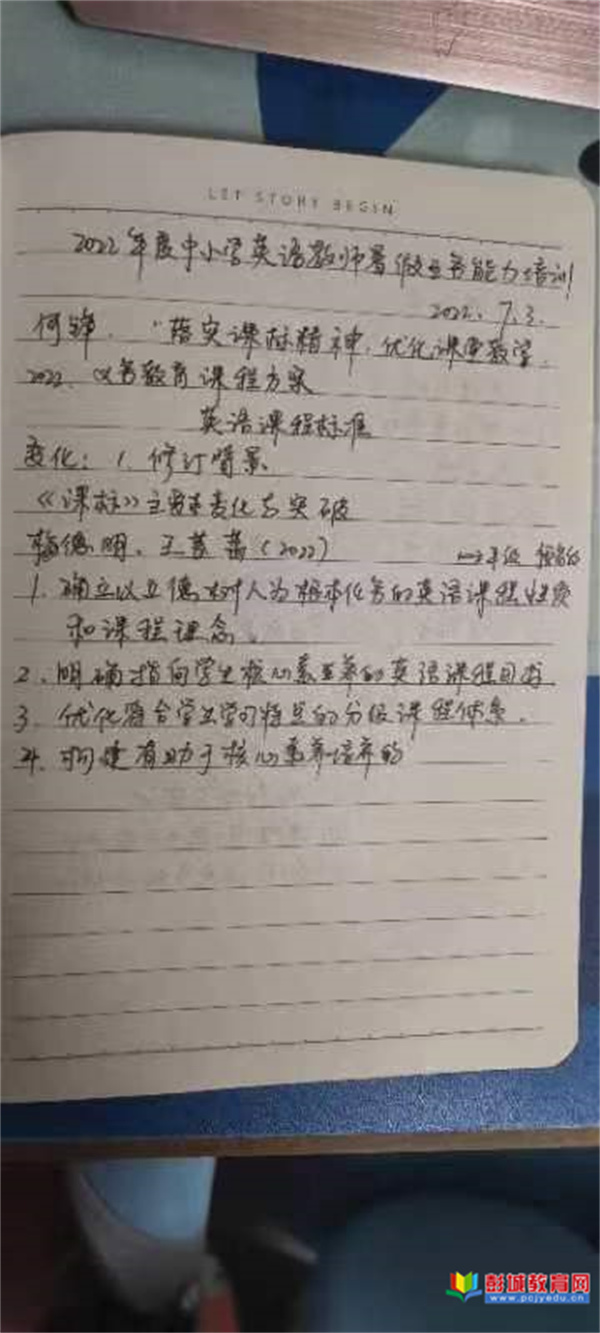 LET STORY BEGIN
2022年度中小学英语教师暑假业务能力培训
2022.7.3.
何锋. "落实课标精神,优化课堂教学.
2022. 义务教育课程方案
英语课程标准
变化: 1. 修订背景
《课标》主要变化与突破
梅德明、王蔷(2022)
1. 确立以立德树人为根本任务的英语课程性质
和课程理念。
2. 明确指向学生核心素养的英语课程目标
3. 优化符合学生学习特点的分级课程体系.
4. 构建有助于核心素养培养的
彭城教育网
www.pcjyedu.cn